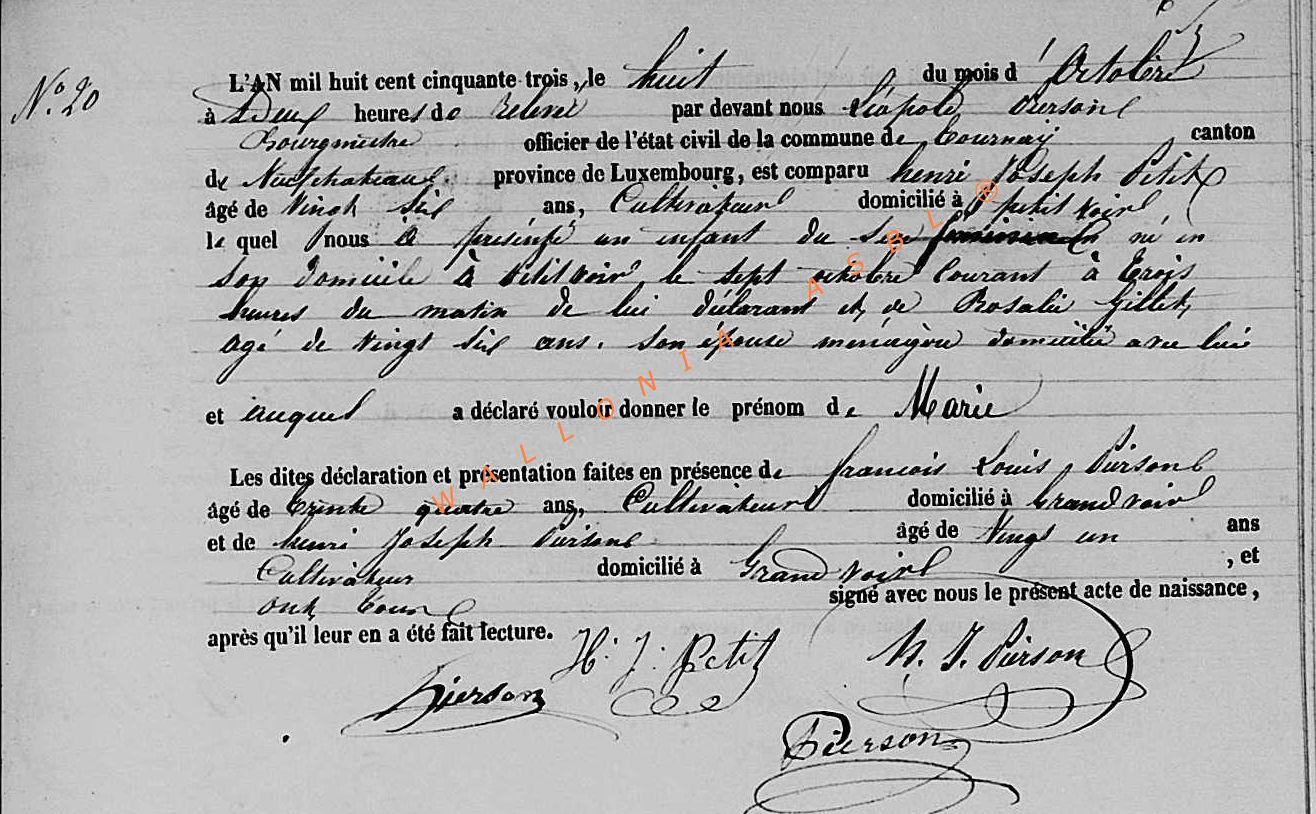 N.° 20
L'AN mil huit cent cinquante trois, le huit du mois d'Octobre
à Deux heures de relevé par devant nous Léopold Pierson
Bourgmestre officier de l'état civil de la commune de Tournay canton
de Neufchateau province de Luxembourg, est comparu henri Joseph Petit
âgé de Vingt six ans, Cultivateur domicilié à petitvoir
le quel nous a présenté un enfant du sexe féminin né en
son domicile à Petitvoir le sept octobre Courant à trois
heures du matin de lui déclarant et de Rosalie Gillet,
agé de Vingt six ans. son épouse ménagère domiciliée avec lui
et auquel a déclaré vouloir donner le prénom de Marie
Les dites déclaration et présentation faites en présence de francois Louis Pierson
âgé de trente quatre ans, Cultivateur domicilié à Grandvoir
et de henri Joseph Pierson âgé de Vingt un ans
Cultivateur domicilié à Grandvoir , et
ont tous signé avec nous le présent acte de naissance,
après qu'il leur en a été fait lecture.
H. J. Petit H. J. Pierson
Pierson
Pierson
WALLONIA ASBL ®